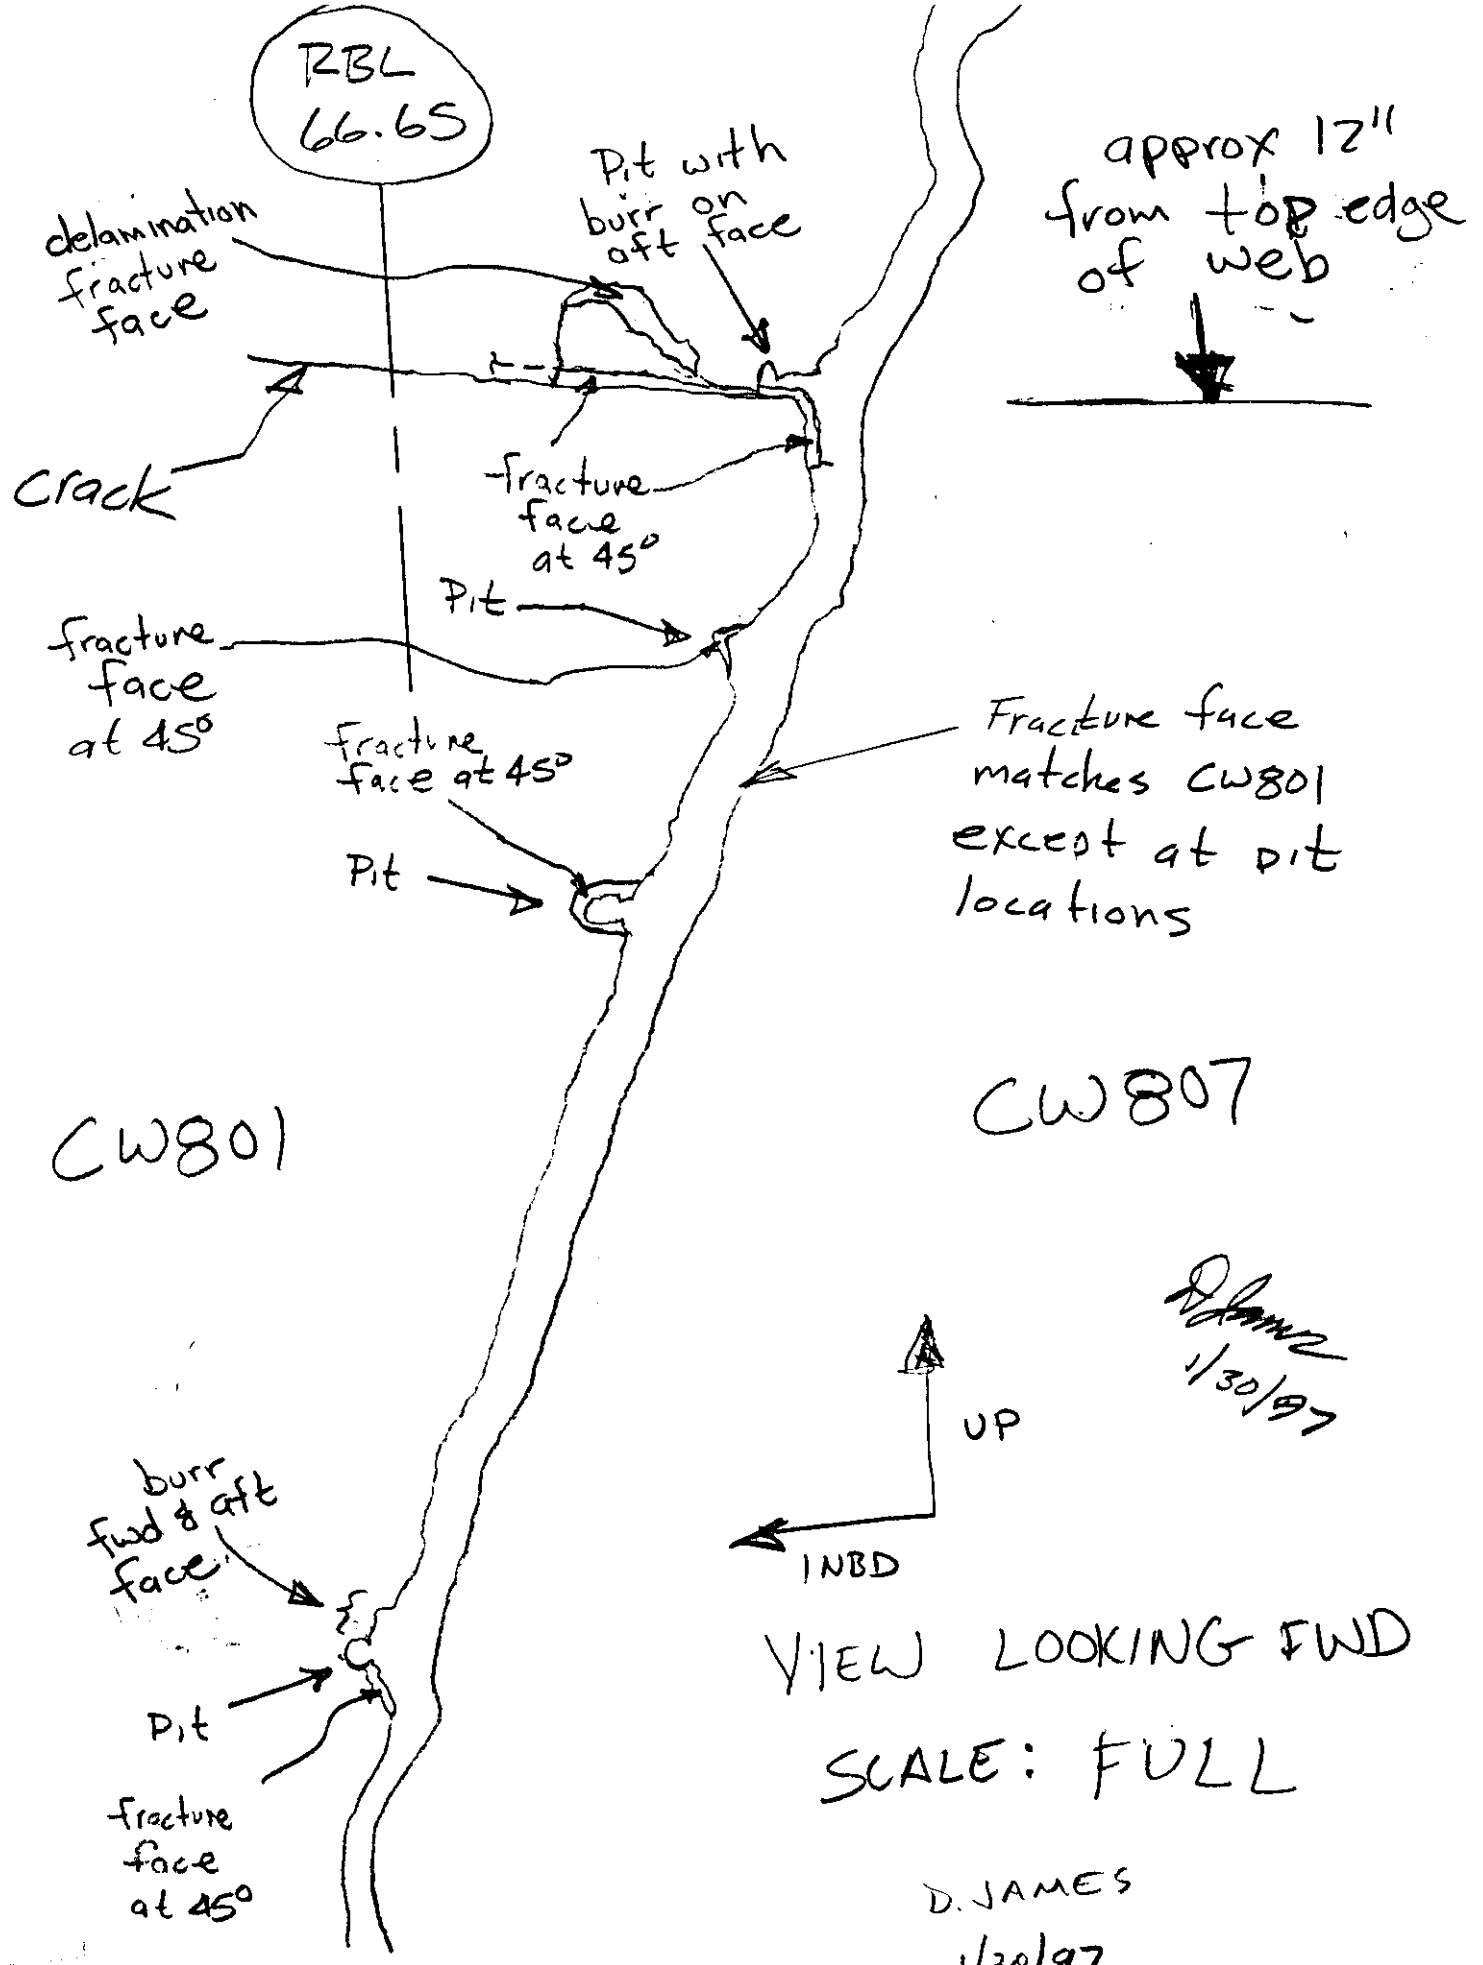 RBL
66.65
Pit with
burr on
aft face
approx 12"
from top edge
of web
delamination
fracture
face
crack
fracture
face
at 45°
Pit
fracture
face
at 45°
fracture
face at 45°
Pit
Fracture face
matches CW801
except at pit
locations
CW801
CW807
D James
1/30/97
UP
INBD
burr
fwd & aft
face
Pit
fracture
face
at 45°
VIEW LOOKING FWD
SCALE: FULL
D. JAMES
1/30/97